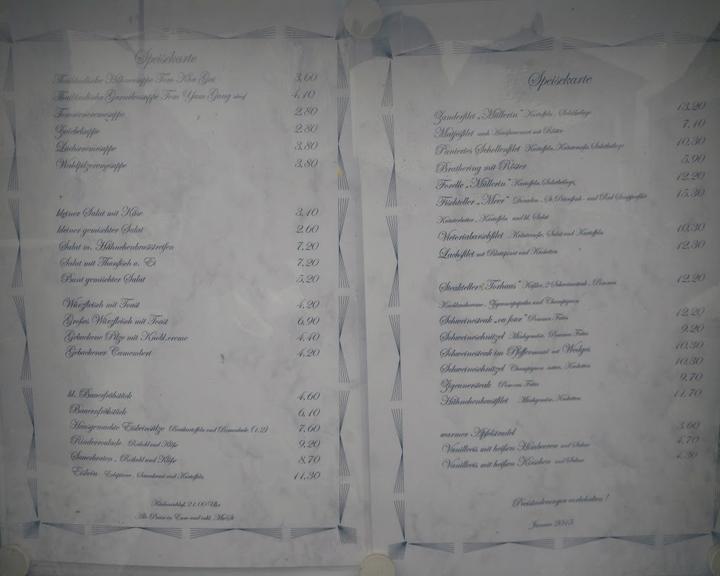 Speisekarte
Thailändische Hühnersuppe Tom Kha Gai 3,60
Thailändische Garnelensuppe Tom Yam Gung scharf 4,10
Tomatencremesuppe 2,80
Zwiebelsuppe 2,80
Lachscremesuppe 3,80
Waldpilzcremesuppe 3,80
kleiner Salat mit Käse 3,10
kleiner gemischter Salat 2,60
Salat m. Hähnchenbruststreifen 7,20
Salat mit Thunfisch u. Ei 7,20
Bunt gemischter Salat 5,20
Würzfleisch mit Toast 4,20
Großes Würzfleisch mit Toast 6,90
Gebackene Pilze mit Knobl.creme 4,40
Gebackener Camembert 4,20
kl. Bauernfrühstück 4,60
Bauernfrühstück 6,10
Hausgemachte Eisbeinsülze Bratkartoffeln und Remoulade (1,2) 7,60
Rinderroulade Rotkohl und Klöße 9,20
Sauerbraten Rotkohl und Klöße 8,70
Eisbein Erbspüree, Sauerkraut und Kartoffeln 11,30
Küchenschluß 21.00 Uhr
Alle Preise in Euro und inkl. MwSt
Speisekarte
Zanderfilet „Müllerin" Kartoffeln, Salatbeilage 13,20
Matjesfilet nach Hausfrauenart mit Röster 7,10
Paniertes Schollenfilet Kartoffeln, Salatbeilage 10,30
Brathering mit Röster 5,90
Forelle „Müllerin" Kartoffeln, Salatbeilage, 12,20
Fischteller „Meer" 15,30
Kräuterbutter, Kartoffeln und kl. Salat
Victoriabarschfilet Kräutersoße, Salat und Kartoffeln 10,30
Lachsfilet mit Blattspinat und Kroketten 12,30
Steakteller „Torhaus" 12,20
Champignon
Schweinesteak „au four" Pommes Frites 12,20
Schweineschnitzel Mischgemüse, Pommes Frites 9,20
Schweinesteak im Pfeffermantel mit Wedges 10,30
Schweineschnitzel Champignon Kroketten 10,30
Zigeunersteak Pommes Frites 9,70
Hähnchenbrustfilet Mischgemüse, Kroketten 11,70
warmer Apfelstrudel 3,60
Vanilleeis mit heißen Himbeeren und Sahne 4,70
Vanilleeis mit heißen Kirschen und Sahne 4,30
Preisänderungen vorbehalten !
Januar 2013